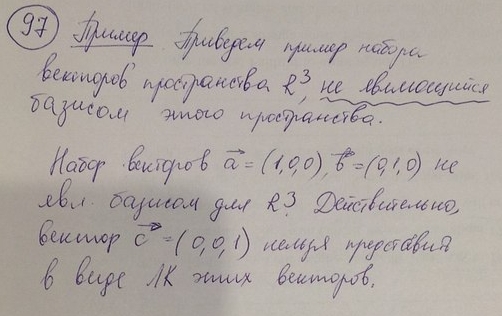 97 Пример Приведем пример набора
векторов пространства R³, не являющийся
базисом этого пространства.
Набор векторов a⃗ = (1,0,0), b⃗ = (0,1,0) не
явл. базисом для R³. Действительно,
вектор c⃗ = (0,0,1) нельзя представит
в виде ЛК этих векторов.